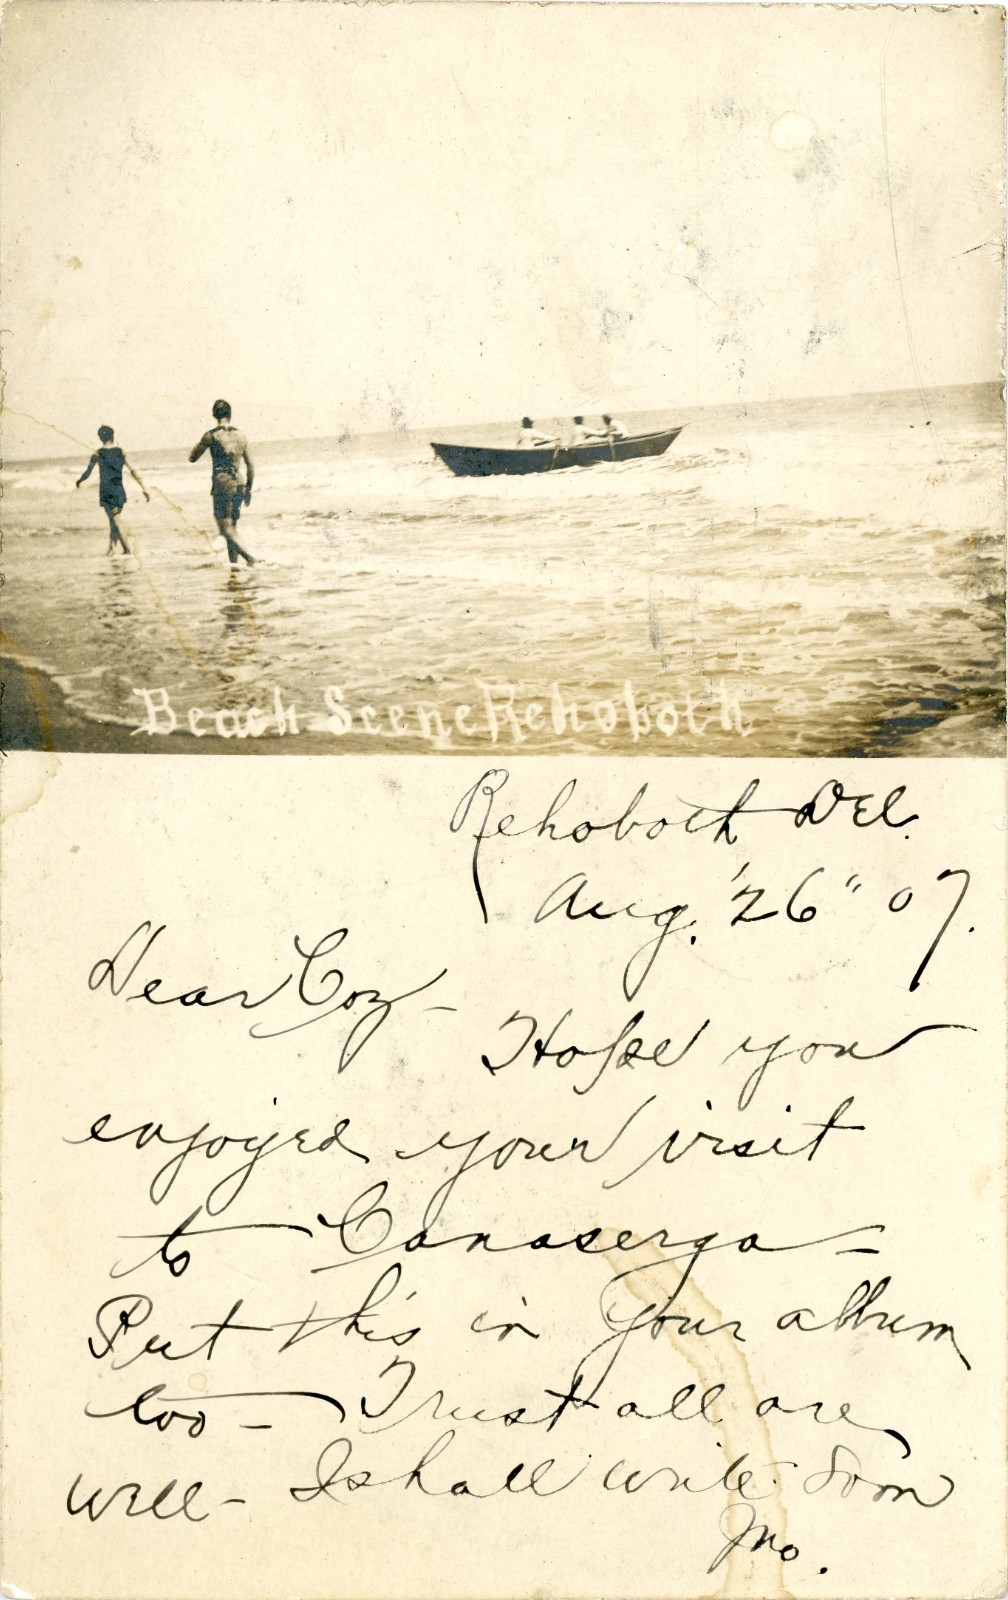 Beach Scene Rehoboth
Rehoboth Del.
Aug. '26" 07.
Dear Coz -
Hope you
enjoyed your visit
to Canaserga -
Put this in your album
too - Trust all are
well - I shall write soon
Jno.